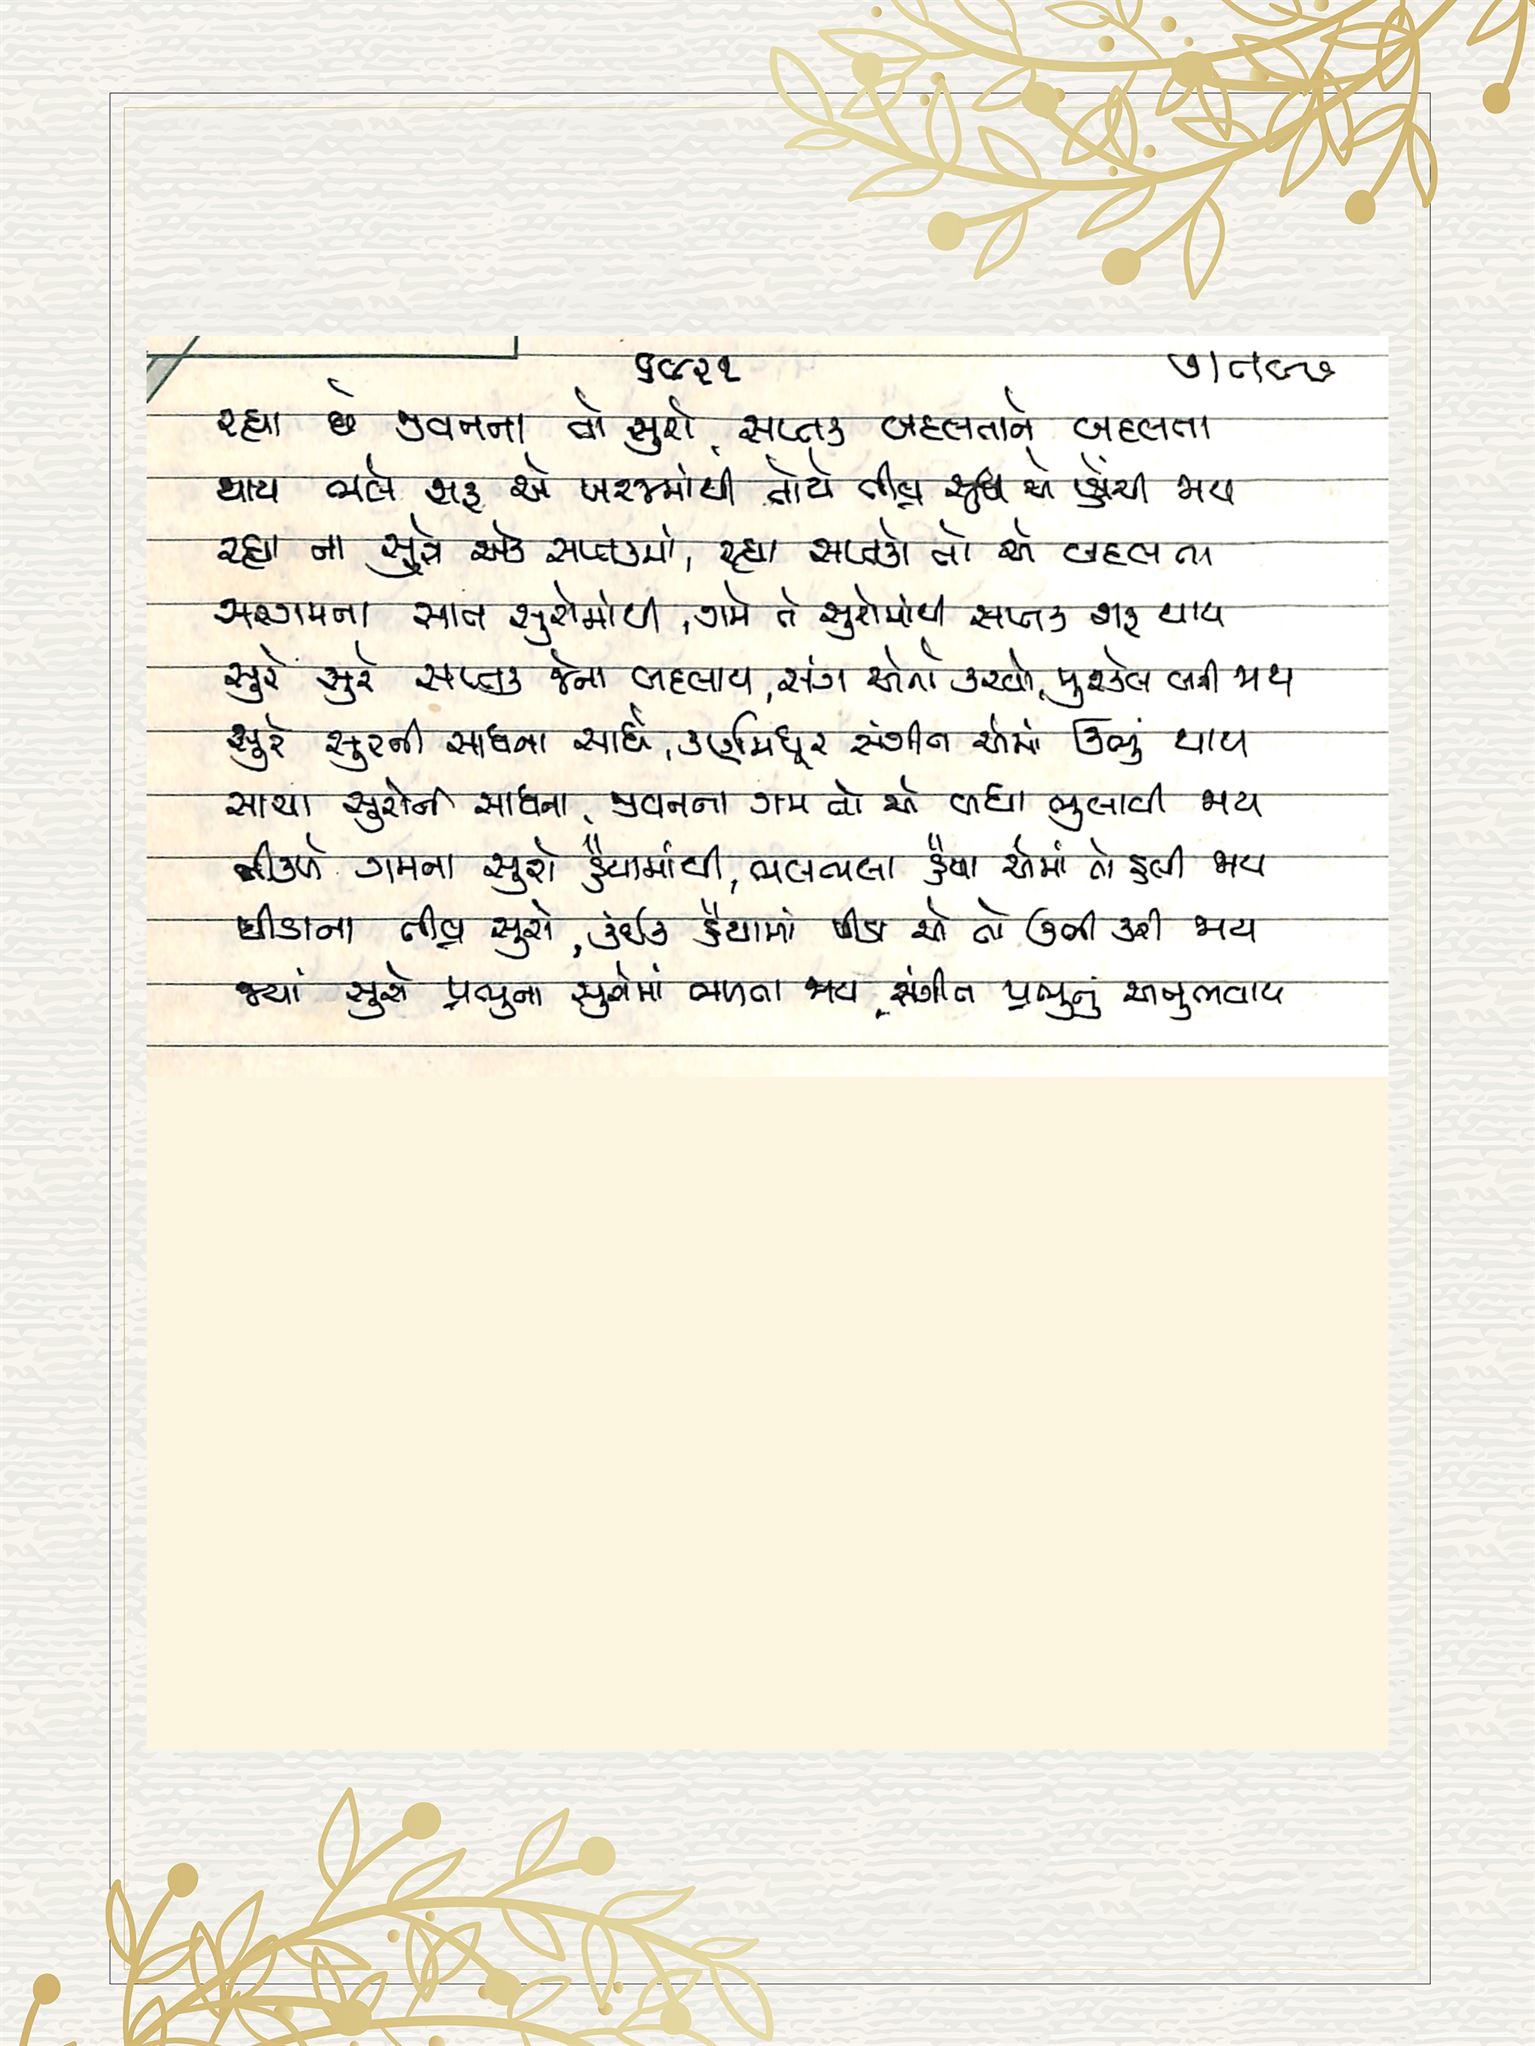 ૬૮૨૧
રહ્યા છે જીવનના તો સુરો, સપ્તક બદલતાને બદલતા
થાય ભલે શરૂ એ ખરજમાંથી તોયે તીવ્ર સુધી એ પ્હોંચી જાય
રહ્યા ના સુરો એક સપ્તકમાં, રહ્યા સપ્તકો તો એ બદલતા
સરગમના સાત સુરોમાંથી, ગમે તે સુરોમાંથી સપ્તક શરૂ થાય
સુરે સુરે સપ્તક જેના બદલાય, સંગ એનો કરવો, મુશ્કેલ બની જાય
સુરે સુરની સાધના સાધે, કર્ણમધૂર સંગીત એમાં ઉભું થાય
સાચા સુરોની સાધના, જીવનના ગમ તો એ બધા ભુલાવી જાય
નીકળે ગમના સુરો હૈયામાંથી, ભલભલા હૈયા એમાં તો હલી જાય
પીડાના તીવ્ર સુરો, કંઈક હૈયામાં પીડા એ તો ઉભી કરી જાય
જ્યાં સુરો પ્રભુના સુરોમાં ભળતા જાય, સંગીત પ્રભુનું અનુભવાય